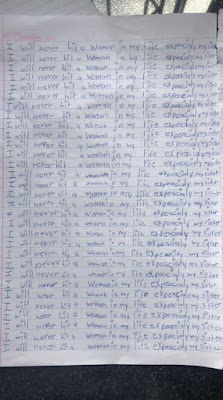 I will never hit a woman in my life expecialy my sister
I will never hit a woman in my life expecialy my sister
I will never hit a woman in my life expecialy my sister
I will never hit a woman in my life expecialy my sister
I will never hit a woman in my life expecialy my sister
I will never hit a woman in my life expecialy my sister
I will never hit a woman in my life expecialy my sister
I will never hit a woman in my life expecialy my sister
I will never hit a woman in my life expecialy my sister
I will never hit a woman in my life expecialy my sister
I will never hit a woman in my life expecialy my sister
I will never hit a woman in my life expecialy my sister
I will never hit a woman in my life expecialy my sister
I will never hit a woman in my life expecialy my sister
I will never hit a woman in my life expecialy my sister
I will never hit a woman in my life expecialy my sister
I will never hit a woman in my life expecialy my sister
I will never hit a woman in my life expecialy my sister
I will never hit a woman in my life expecialy my sister
I will never hit a woman in my life expecialy my sister
I will never hit a woman in my life expecialy my sister
I will never hit a woman in my life expecialy my sister
I will never hit a woman in my life expecialy my sister
I will never hit a woman in my life expecialy my sister
I will never hit a woman in my life expecialy my sister
I will never hit a woman in my life expecialy my sister
I will never hit a woman in my life expecialy my sister
I will never hit a woman in my life expecialy my sister
I will never hit a woman in my life expecialy my sister
I will never hit a woman in my life expecialy my sister